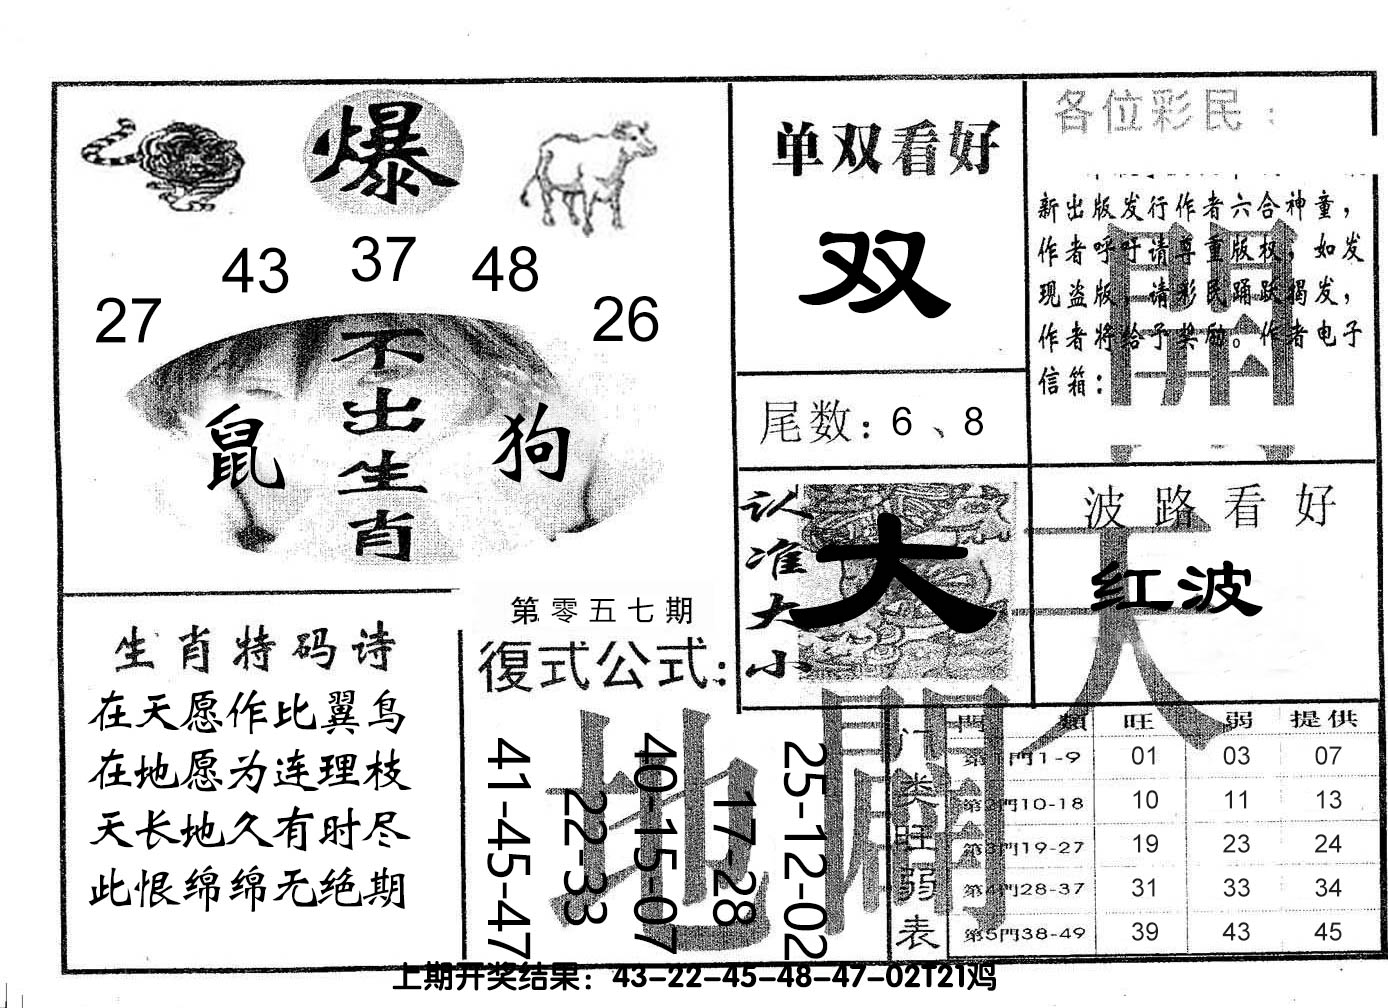 爆
43 37 48
27 26
不出生肖
鼠 狗
单双看好
双
尾数：6、8
各位彩民：
新出版发行作者六合神童，
作者呼吁请尊重版权，如发
现盗版，请彩民踊跃揭发，
作者将给予奖励。作者电子
信箱：
開
认准大小
大
波路看好
红波
天
生肖特码诗
在天愿作比翼鸟
在地愿为连理枝
天长地久有时尽
此恨绵绵无绝期
第零五七期
復式公式：
41-45-47
22-33
40-15-07
17-28
25-12-02
地
門类旺弱表
門類 旺 弱 提供
第1門1-9 01 03 07
第2門10-18 10 11 13
第3門19-27 19 23 24
第4門28-37 31 33 34
第5門38-49 39 43 45
上期开奖结果：43-22-45-48-47-02T21鸡